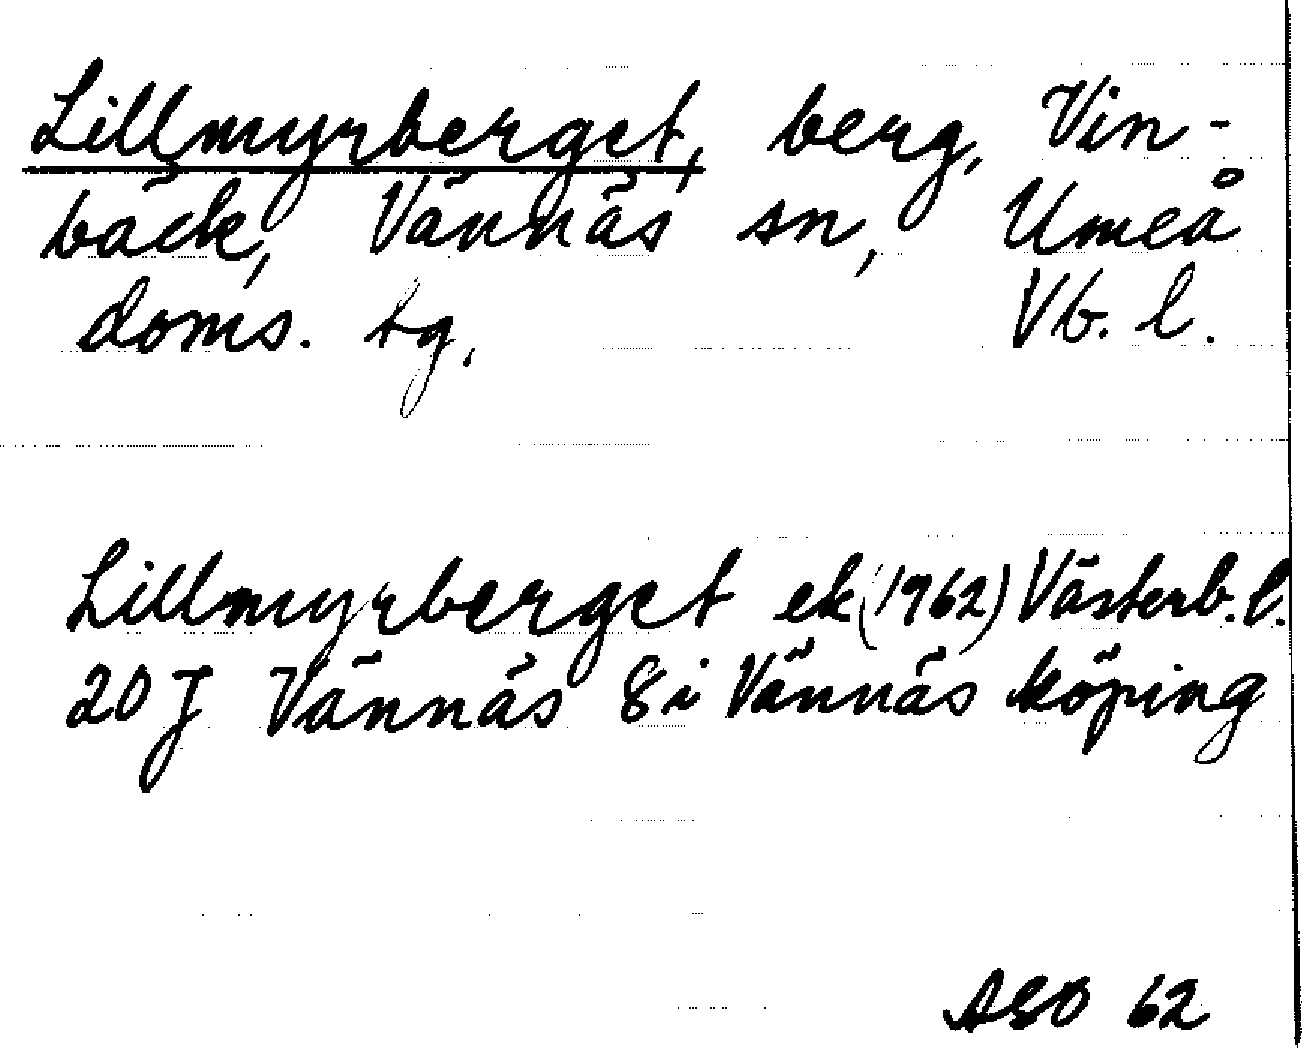 Lillmyrberget, berg, Vin-
bäck, Vännäs sn, Umeå
doms. tg. Vb. l.
Lillmyrberget ek (1962) Västerb. l.
20 J Vännäs 8 i Vännäs köping
ASO 62